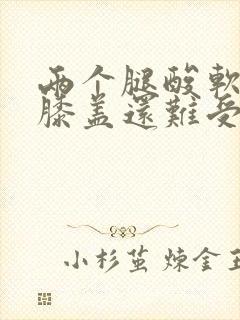 两个腿酸軟
膝盖還難受
小杉茧 煉金王